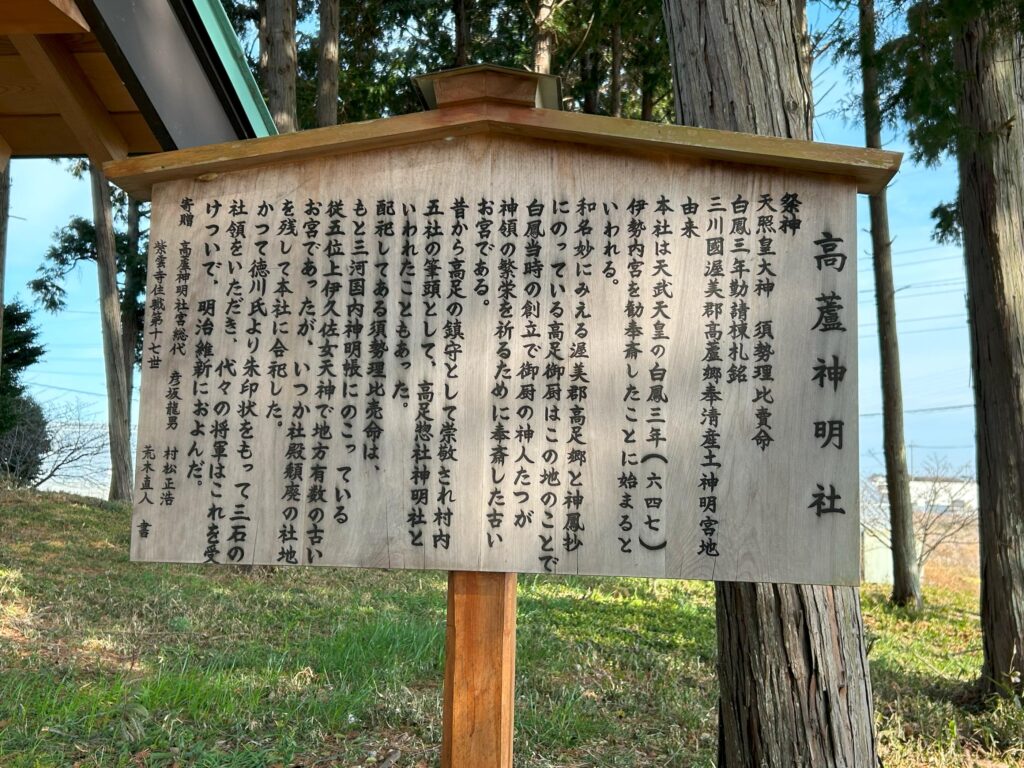 高蘆神明社
祭神
天照皇大神　須勢理比賣命
白鳳三年勧請棟札銘
三川國渥美郡高蘆郷奉清産土神明宮地
由来
本社は天武天皇の白鳳三年(六四七)
伊勢内宮を勧奉斎したことに始まると
いわれる。
和名妙にみえる渥美郡高足郷と神鳳抄
にのっている高足御厨はこの地のことで
白鳳当時の創立で御厨の神人たつが
神領の繁栄を祈るために奉斎した古い
お宮である。
昔から高足の鎮守として崇敬され村内
五社の筆頭として、高足惣社神明社と
いわれたこともあった。
配祀してある須勢理比売命は、
もと三河国内神明帳にのこっている
従五位上伊久佐女天神で地方有数の古い
お宮であったが、いつか社殿頽廃の社地
を残して本社に合祀した。
かつて徳川氏より朱印状をもって三石の
社領をいただき、代々の将軍はこれを受
けついで、明治維新におよんだ。
寄贈　高蘆神明社宮総代　彦坂龍男　村松正浩
紫雲寺住職第十七世　荒木直人　書